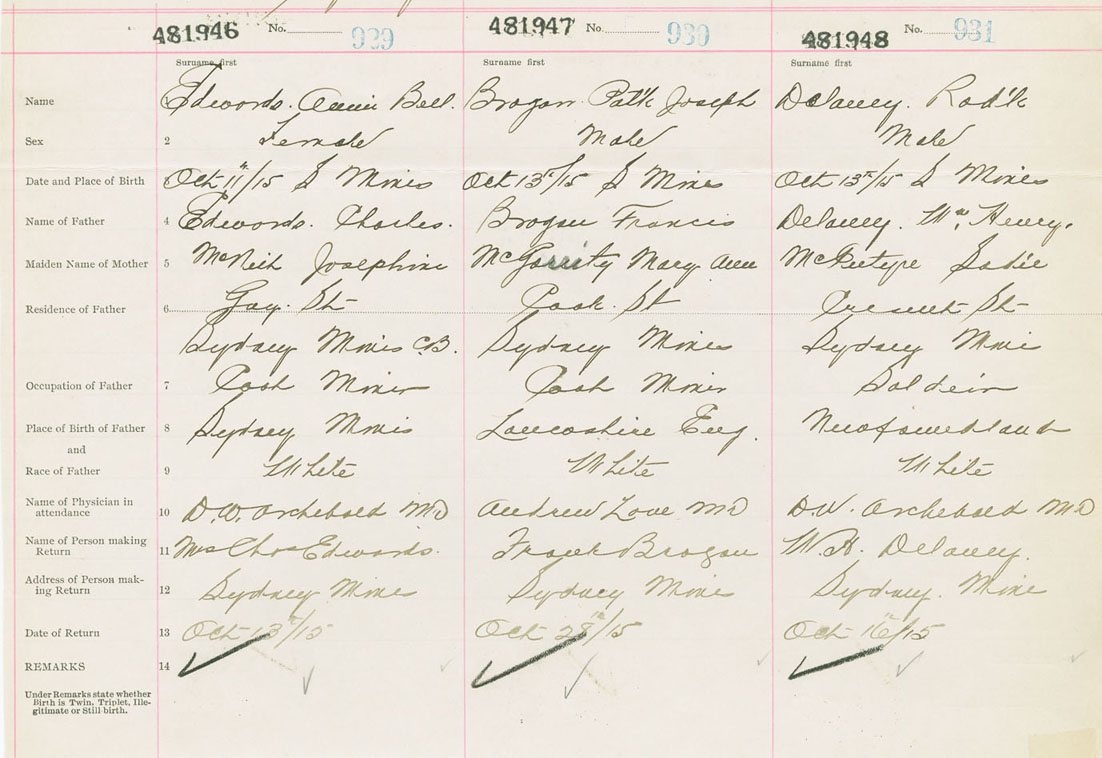 481946 No. 929 481947 No. 930 481948 No. 931
Surname first Surname first Surname first
Name Edwards. Annie Bell. Brogan Pat'k Joseph Delaney. Rod'k
Sex 2 Female Male Male
Date and Place of Birth Oct 11th/15 S Mines Oct 13th/15 S Mines Oct 13th/15 S Mines
Name of Father 4 Edwards. Charles. Brogan Francis Delaney. Wm. Henry.
Maiden Name of Mother 5 Josephine McGarrity Mary Ann McIntyre Sadie
Residence of Father 6 St Cook. St Crescent St
Sydney Mines C.B. Sydney Mines Sydney Mine
Occupation of Father 7 Coal Miner Coal Miner Soldeir
Place of Birth of Father 8 Sydney Mines Lancashire Eng. Newfoundland
and
Race of Father 9 White White White
Name of Physician in
attendance 10 D.W. Archebald MD Andrew Love MD D.W. Archebald MD
Name of Person making
Return 11 Mrs Chas Edwards. Frank Brogan W.H. Delaney.
Address of Person mak-
ing Return 12 Sydney Mine Sydney Mine Sydney. Mine
Date of Return 13 Oct 13th/15 Oct 28th/15 Oct 16th/15
REMARKS 14
Under Remarks state whether
Birth is Twin, Triplet, Ille-
gitimate or Still-birth.